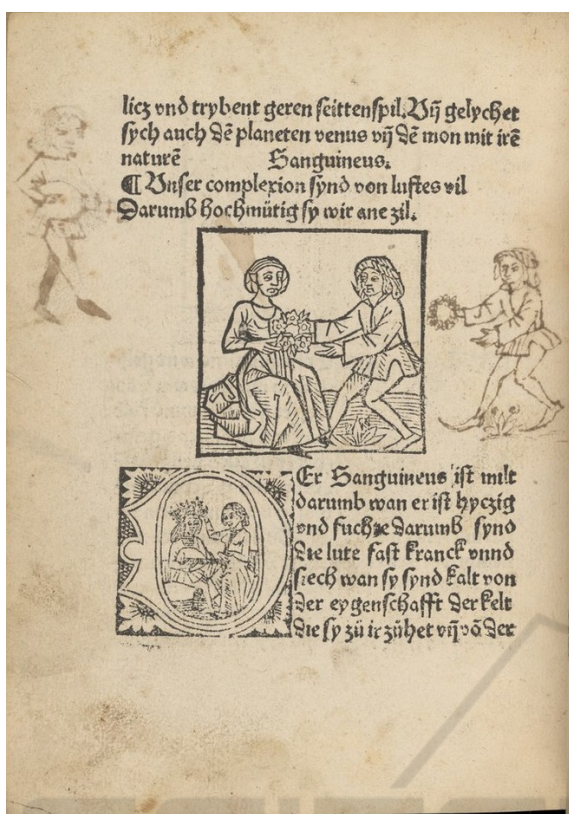 licz vnd trybent geren seittenspil. Vn̄ gelychet
sych auch dē planeten venus vn̄ dē mon mit irē
naturē Sanguineus.
¶ Vnser complexion synd von lustes vil
Darumb hochmütig sy wir ane zil.
DEr Sanguineus ist milt
darumb wan er ist hyczig
vnd fuchte darumb synd
die lute fast kranck vnnd
siech wan sy synd kalt von
der eygenschafft der kelt
die sy zü ir zühet vn̄ vō der